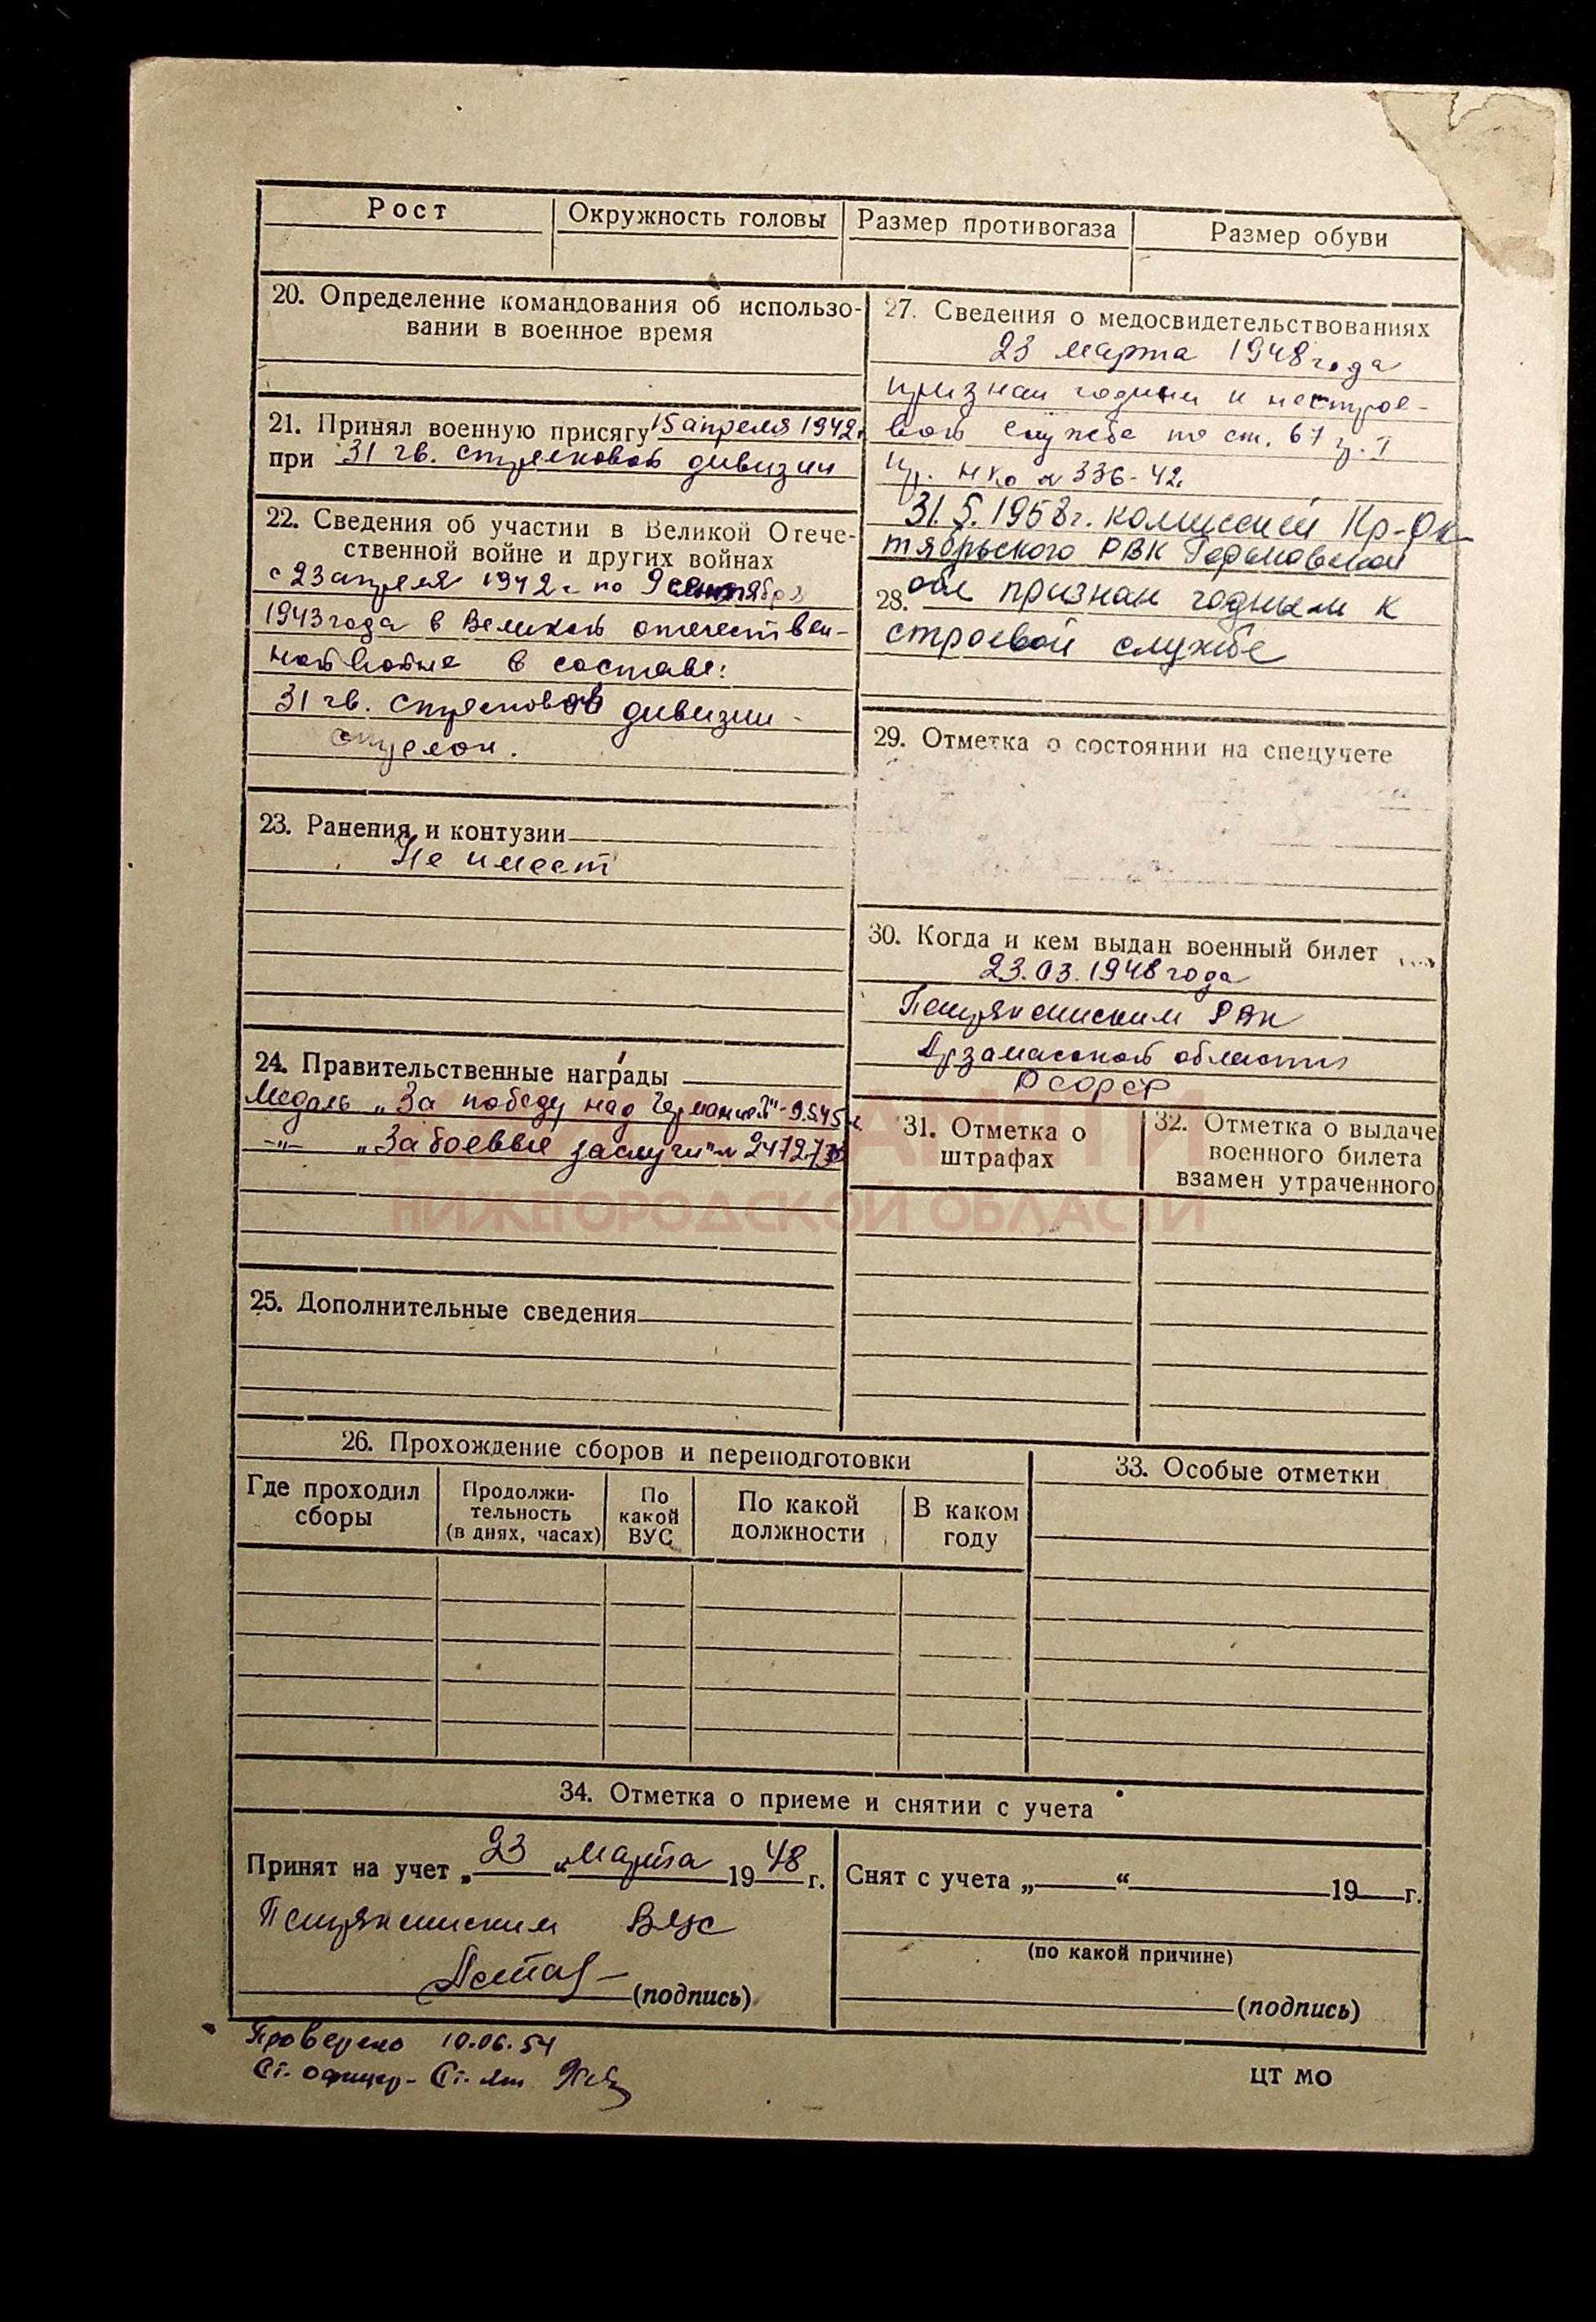 Рост
Окружность головы
Размер противогаза
Размер обуви
20. Определение командования об использо-
вании в военное время
21. Принял военную присягу 15 апреля 1942 г.
при 31 гв. стрелковой дивизии
22. Сведения об участии в Великой Отече-
ственной войне и других войнах
с 23 апреля 1942 г. по 9 сентября
1943 года в Великой отечествен-
ной войне в составе:
31 гв. стрелковой дивизии -
стрелок.
23. Ранения и контузии
Не имеет
24. Правительственные награды
Медаль „За победу над Германией" - 9.5.45 г.
-"- „За боевые заслуги" №
25. Дополнительные сведения
27. Сведения о медосвидетельствованиях
23 марта 1948 года
признан годным к нестрое-
вой службе по ст. 67 гр. I
пр. НКО № 336-42.
31.5.1958 г. комиссией Кр-Ок
тябрьского РВК Горьковской
28. обл признан годным к
строевой службе
29. Отметка о состоянии на спецучете
30. Когда и кем выдан военный билет
23.03.1948 года
Петряксинским РВК
Арзамасской области
РСФСР
31. Отметка о
штрафах
32. Отметка о выдаче
военного билета
взамен утраченного
ПАМЯТИ
НИЖЕГОРОДСКОЙ ОБЛАСТИ
26. Прохождение сборов и переподготовки
Где проходил
сборы
Продолжи-
тельность
(в днях, часах)
По
какой
ВУС
По какой
должности
В каком
году
33. Особые отметки
34. Отметка о приеме и снятии с учета
Принят на учет „23" Марта 1948 г.
Петряксинским ВУС
(подпись)
Снят с учета „ " 19 г.
(по какой причине)
(подпись)
Проверено 10.06.54
Ст. офицер - Ст. лт
ЦТ МО